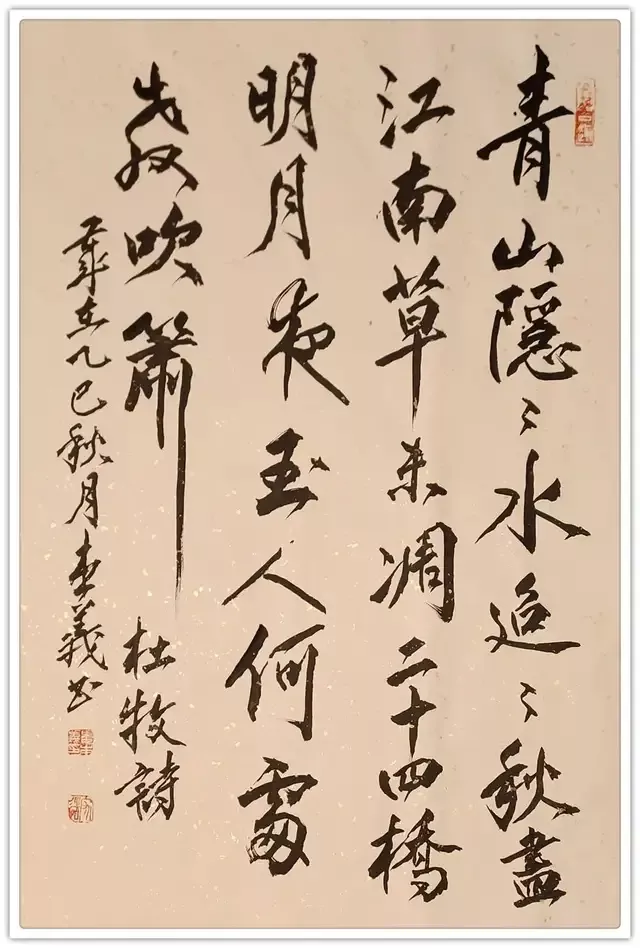 青山隱〻水迢〻秋盡
江南草未凋二十四橋
明月夜玉人何處
教吹簫 杜牧詩
歲在乙巳秋月義書